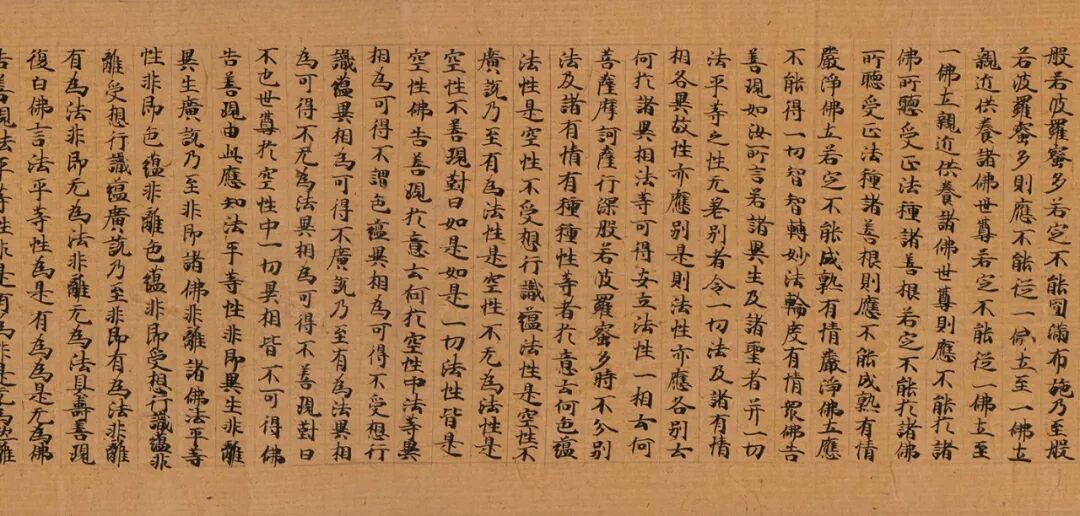 般若波羅蜜多若定不能圓滿布施乃至般
若波羅蜜多則應不能從一佛土至一佛土
親近供養諸佛世尊若定不能從一佛土至
一佛土親近供養諸佛世尊則應不能於諸
佛所聽受正法種諸善根若定不能於諸佛
所聽受正法種諸善根則應不能成熟有情
嚴淨佛土若定不能成熟有情嚴淨佛土應
不能得一切智智轉妙法輪度有情眾佛告
善現如汝所言若諸異生及諸聖者并一切
法平等之性无差別者令一切法及諸有情
相各異故性亦應別是則法性亦應各別云
何於諸異相法等可得安立法性一相云何
菩薩摩訶薩行深般若波羅蜜多時不分別
法及諸有情有種種性等者於意云何色蘊
法性是空性不受想行識蘊法性是空性不
廣說乃至有為法性是空性不无為法性是
空性不善現對曰如是如是一切法性皆是
空性佛告善現於意云何於空性中法等異
相為可得不謂色蘊異相為可得不受想行
識蘊異相為可得不廣說乃至有為法異相
為可得不无為法異相為可得不善現對曰
不也世尊於空性中一切異相皆不可得佛
告善現由此應知法平等性非即異生非離
異生廣說乃至非即諸佛非離諸佛法平等
性非即色蘊非離色蘊非即受想行識蘊非
離受想行識蘊廣說乃至非即有為法非離
有為法非即无為法非離无為法具壽善現
復白佛言法平等性為是有為為是无為佛
告善現法平等性非是有為非是无為然離